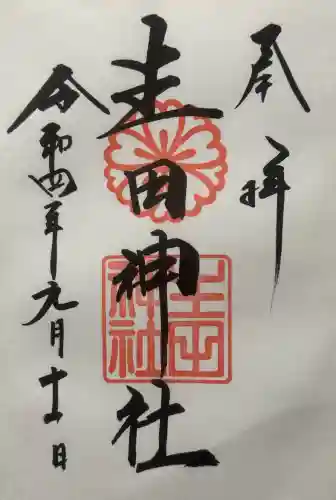 奉拝
生田神社
生田
神社
令和四年九月十一日